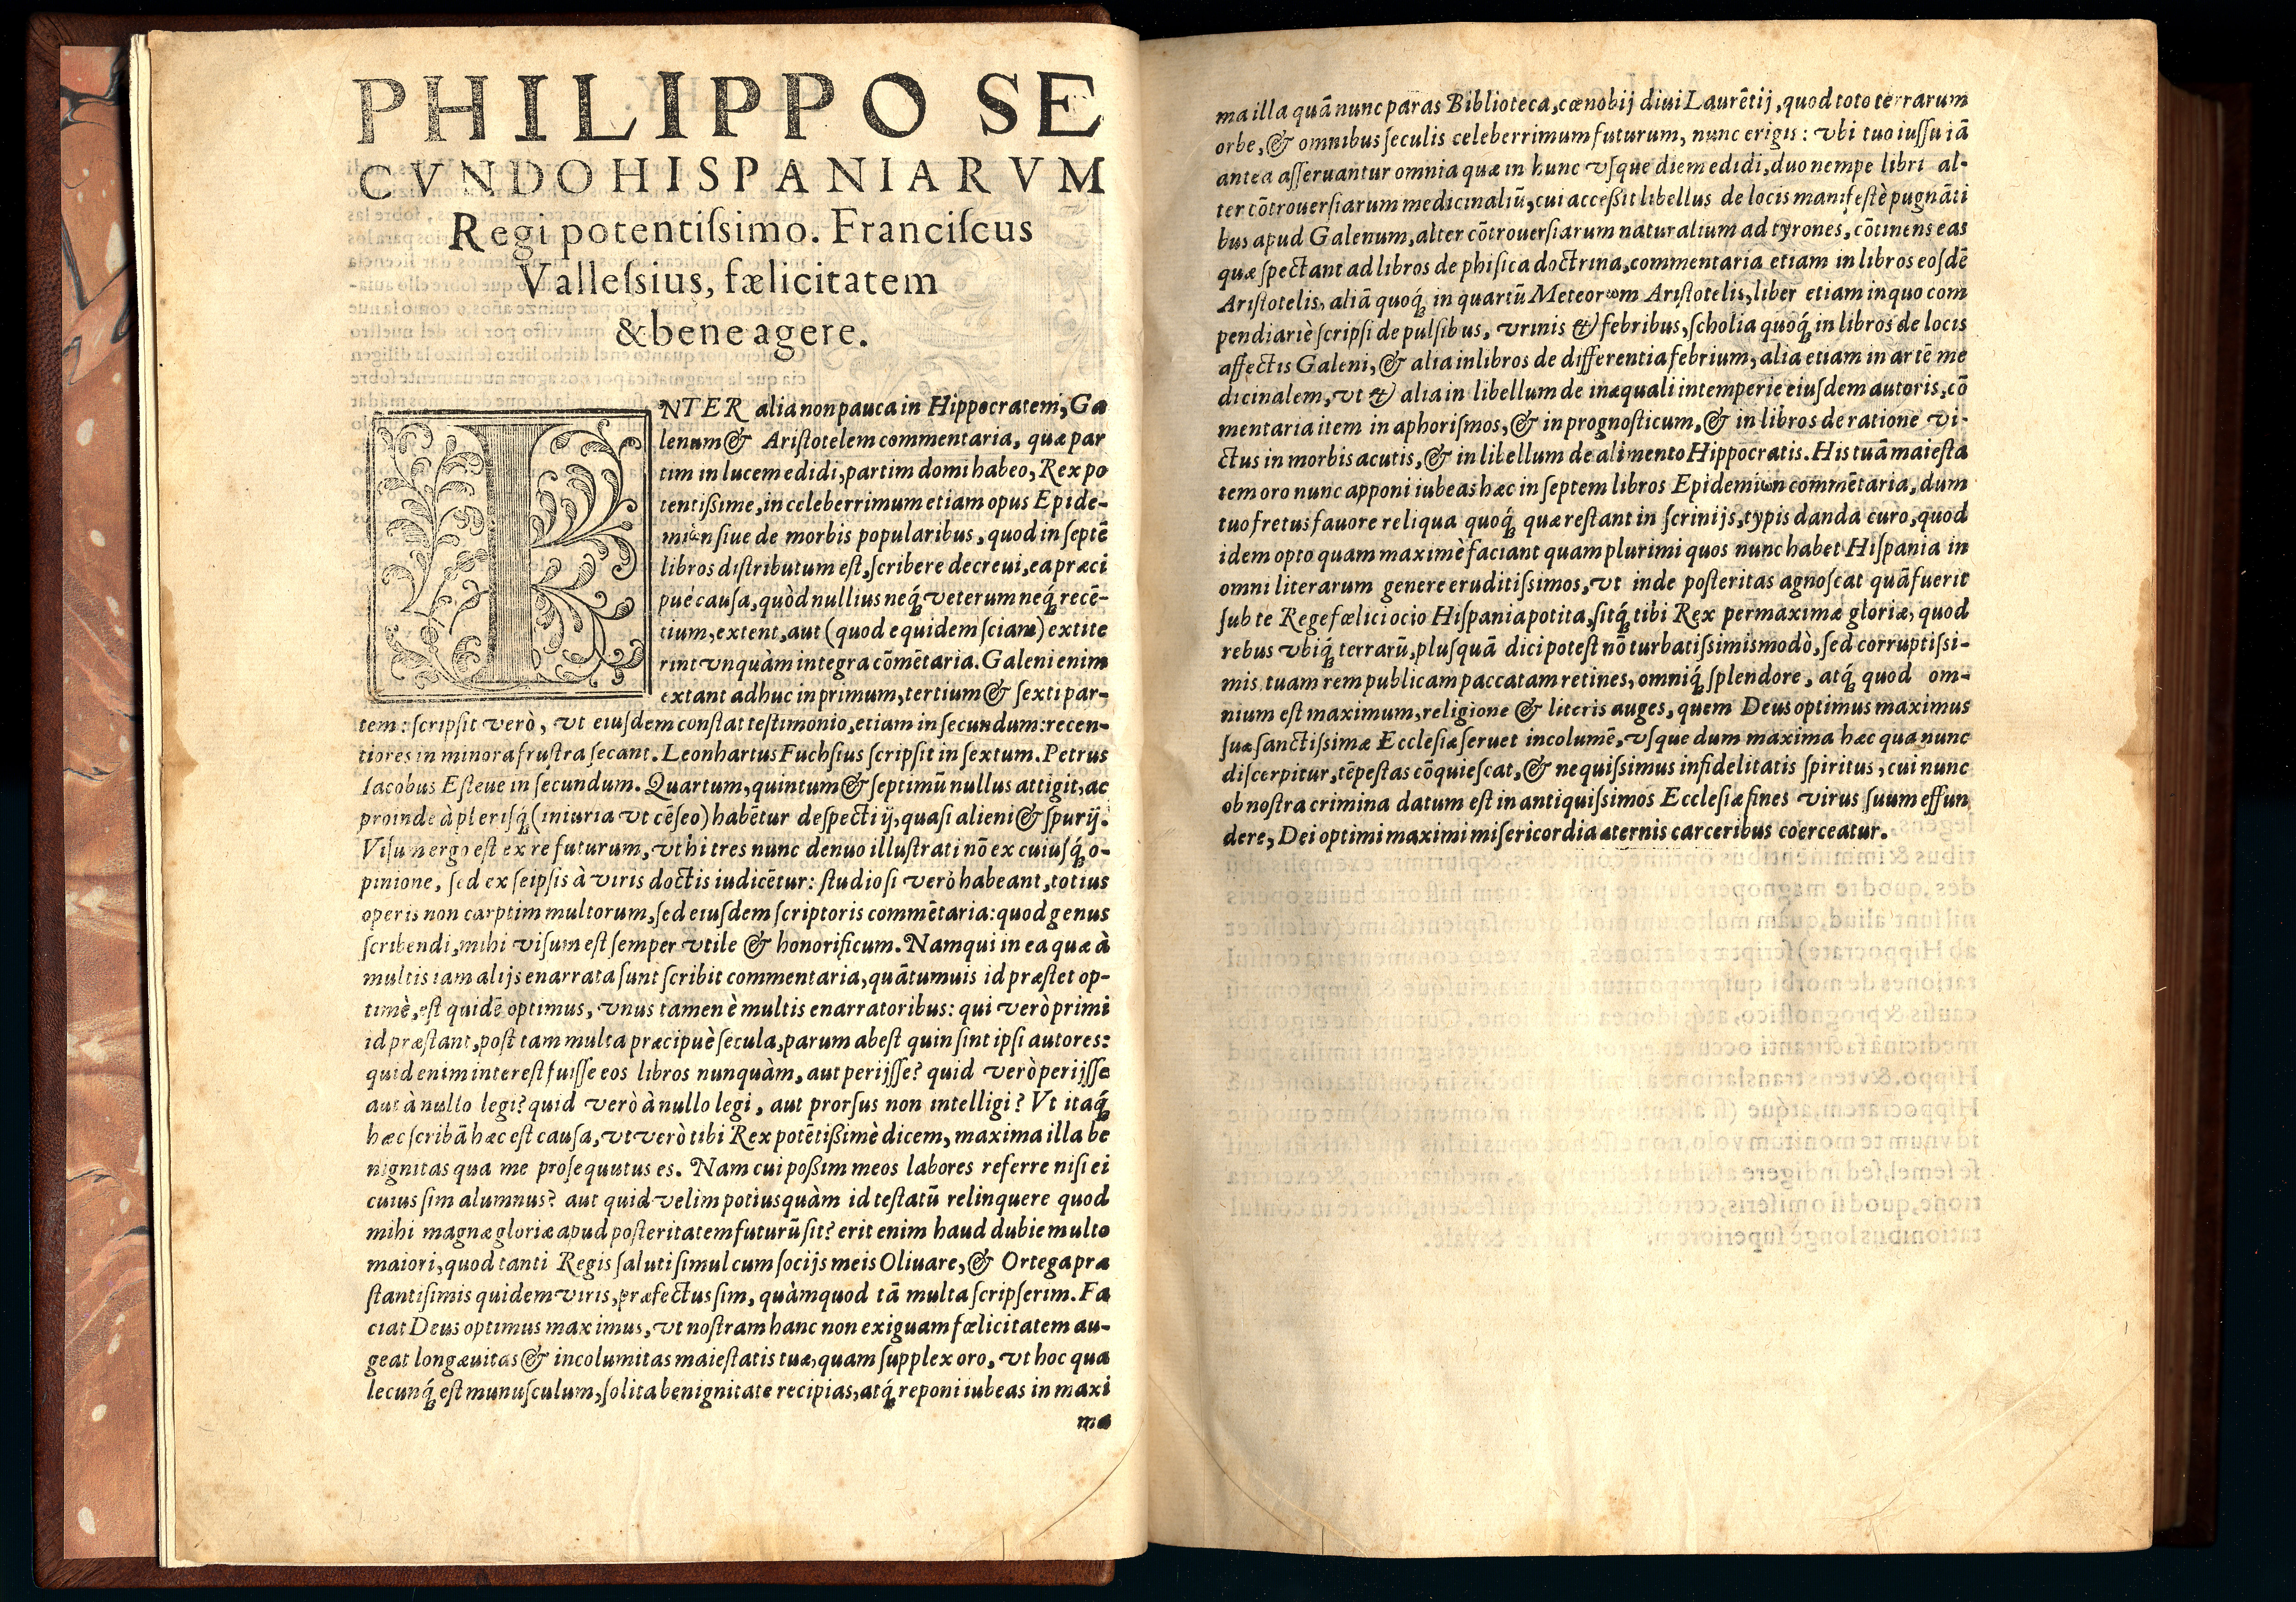 PHILIPPO SE
CVNDO HISPANIARVM
Regi potentiſsimo. Franciſcus
Valleſsius, fælicitatem
& bene agere.
INTER alia non pauca in Hippocratem, Ga
lenum & Ariſtotelem commentaria, quæ par
tim in lucem edidi, partim domi habeo, Rex po
tentißime, in celeberrimum etiam opus Epide-
miωn ſiue de morbis popularibus, quod in ſeptē
libros diſtributum eſt, ſcribere decreui, ea præci
pué cauſa, quòd nullius neq́; veterum neq́; recē-
tium, extent, aut (quod equidem ſciam) extite
rint vnquàm integra cōmētaria. Galeni enim
extant adhuc in primum, tertium & ſexti par-
tem: ſcripſit verò, vt eiuſdem conſtat teſtimonio, etiam in ſecundum: recen-
tiores in minora fruſtra ſecant. Leonhartus Fuchſius ſcripſit in ſextum. Petrus
Iacobus Eſteue in ſecundum. Quartum, quintum & ſeptimū nullus attigit, ac
proinde à pleriſq́; (iniuria vt cēſeo) habētur deſpecti ij, quaſi alieni & ſpurij.
Viſum ergo eſt ex re futurum, vt hi tres nunc denuo illuſtrati nō ex cuiuſq́; o-
pinione, ſed ex ſeipſis à viris doctis iudicētur: ſtudioſi verò habeant, totius
operis non carptim multorum, ſed eiuſdem ſcriptoris commētaria: quod genus
ſcribendi, mihi viſum eſt ſemper vtile & honorificum. Nam qui in ea quæ à
multis iam alijs enarrata ſunt ſcribit commentaria, quātumuis id præſtet op-
timè, eſt quidē optimus, vnus tamen è multis enarratoribus: qui verò primi
id præſtant, poſt tam multa præcipuè ſecula, parum abeſt quin ſint ipſi autores:
quid enim intereſt fuiſſe eos libros nunquàm, aut perijſſe? quid verò perijſſe
aut à nullo legi? quid verò à nullo legi, aut prorſus non intelligi? Vt itaq́;
hæc ſcribā hæc eſt cauſa, vt verò tibi Rex potētißimè dicem, maxima illa be
nignitas qua me proſequutus es. Nam cui poßim meos labores referre niſi ei
cuius ſim alumnus? aut quid velim potius quàm id teſtatū relinquere quod
mihi magnæ gloriæ apud poſteritatem futurū ſit? erit enim haud dubie multo
maiori, quod tanti Regis ſaluti ſimul cum ſocijs meis Oliuare, & Ortega præ
ſtantiſimis quidem viris, præfectus ſim, quàm quod tā multa ſcripſerim. Fa
ciat Deus optimus maximus, vt noſtram hanc non exiguam fœlicitatem au-
geat longæuitas & incolumitas maieſtatis tuæ, quam ſupplex oro, vt hoc qua
lecunq́; eſt munuſculum, ſolita benignitate recipias, atq́; reponi iubeas in maxi
ma
ma illa quā nunc paras Biblioteca, cœnobij diui Laurētij, quod toto terrarum
orbe, & omnibus ſeculis celeberrimum futurum, nunc erigis: vbi tuo iuſſu iā
antea aſſeruantur omnia quæ in hunc vſque diem edidi, duo nempe libri al-
ter cōtrouerſiarum medicinaliū, cui acceßit libellus de locis manifeſtè pugnāti
bus apud Galenum, alter cōtrouerſiarum naturalium ad tyrones, cōtinens eas
quæ ſpectant ad libros de phiſica doctrina, commentaria etiam in libros eoſdē
Ariſtotelis, aliā quoq́; in quartū Meteorωm Ariſtotelis, liber etiam in quo com
pendiariè ſcripſi de pulſibus, vrinis & febribus, ſcholia quoq́; in libros de locis
affectis Galeni, & alia in libros de differentia febrium, alia etiam in artē me
dicinalem, vt & alia in libellum de inæquali intemperie eiuſdem autoris, cō
mentaria item in aphoriſmos, & in prognoſticum, & in libros de ratione vi-
ctus in morbis acutis, & in libellum de alimento Hippocratis. His tuā maieſta
tem oro nunc apponi iubeas hæc in ſeptem libros Epidemiωn commētaria, dum
tuo fretus fauore reliqua quoq́; quæ reſtant in ſcrinijs, typis danda curo, quod
idem opto quam maximè faciant quam plurimi quos nunc habet Hiſpania in
omni literarum genere eruditiſsimos, vt inde poſteritas agnoſcat quā fuerit
ſub te Rege fœlici ocio Hiſpania potita, ſitq́; tibi Rex permaximæ gloriæ, quod
rebus vbiq́; terrarū, plus quā dici poteſt nō turbatiſsimis modò, ſed corruptiſsi-
mis tuam rempublicam paccatam retines, omniq́; ſplendore, atq́; quod om-
nium eſt maximum, religione & literis auges, quem Deus optimus maximus
ſuæ ſanctiſsimæ Eccleſiæ ſeruet incolumē, vſque dum maxima hæc qua nunc
diſcerpitur, tēpeſtas cōquieſcat, & nequiſsimus infidelitatis ſpiritus, cui nunc
ob noſtra crimina datum eſt in antiquiſsimos Eccleſiæ fines virus ſuum effun
dere, Dei optimi maximi miſericordia æternis carceribus coerceatur.